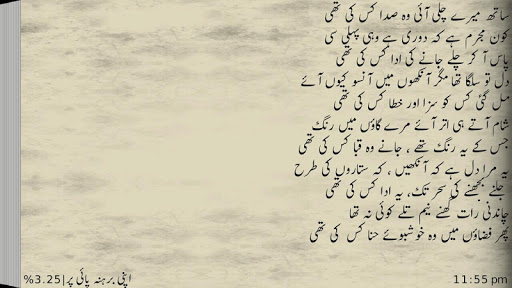 ساتھ میرے چلی آئی وہ صدا کس کی تھی
کون مجرم ہے کہ دوری ہے وہی پہلی سی
پاس آ کر چلے جانے کی ادا کس کی تھی
دل تو سلگا تھا مگر آنکھوں میں آنسو کیوں آئے
مل گئی کس کو سزا اور خطا کس کی تھی
شام آتے ہی اتر آئے مرے گاؤں میں رنگ
جس کے یہ رنگ تھے ، جانے وہ قبا کس کی تھی
یہ مرا دل ہے کہ آنکھیں ، کہ ستاروں کی طرح
جلنے بجھنے کی سحر تک، یہ ادا کس کی تھی
چاندنی رات گھنے نیم تلے کوئی نہ تھا
پھر فضاؤں میں وہ خوشبوئے حنا کس کی تھی
اپنی برہنہ پائی پر|3.25%
11:55 pm